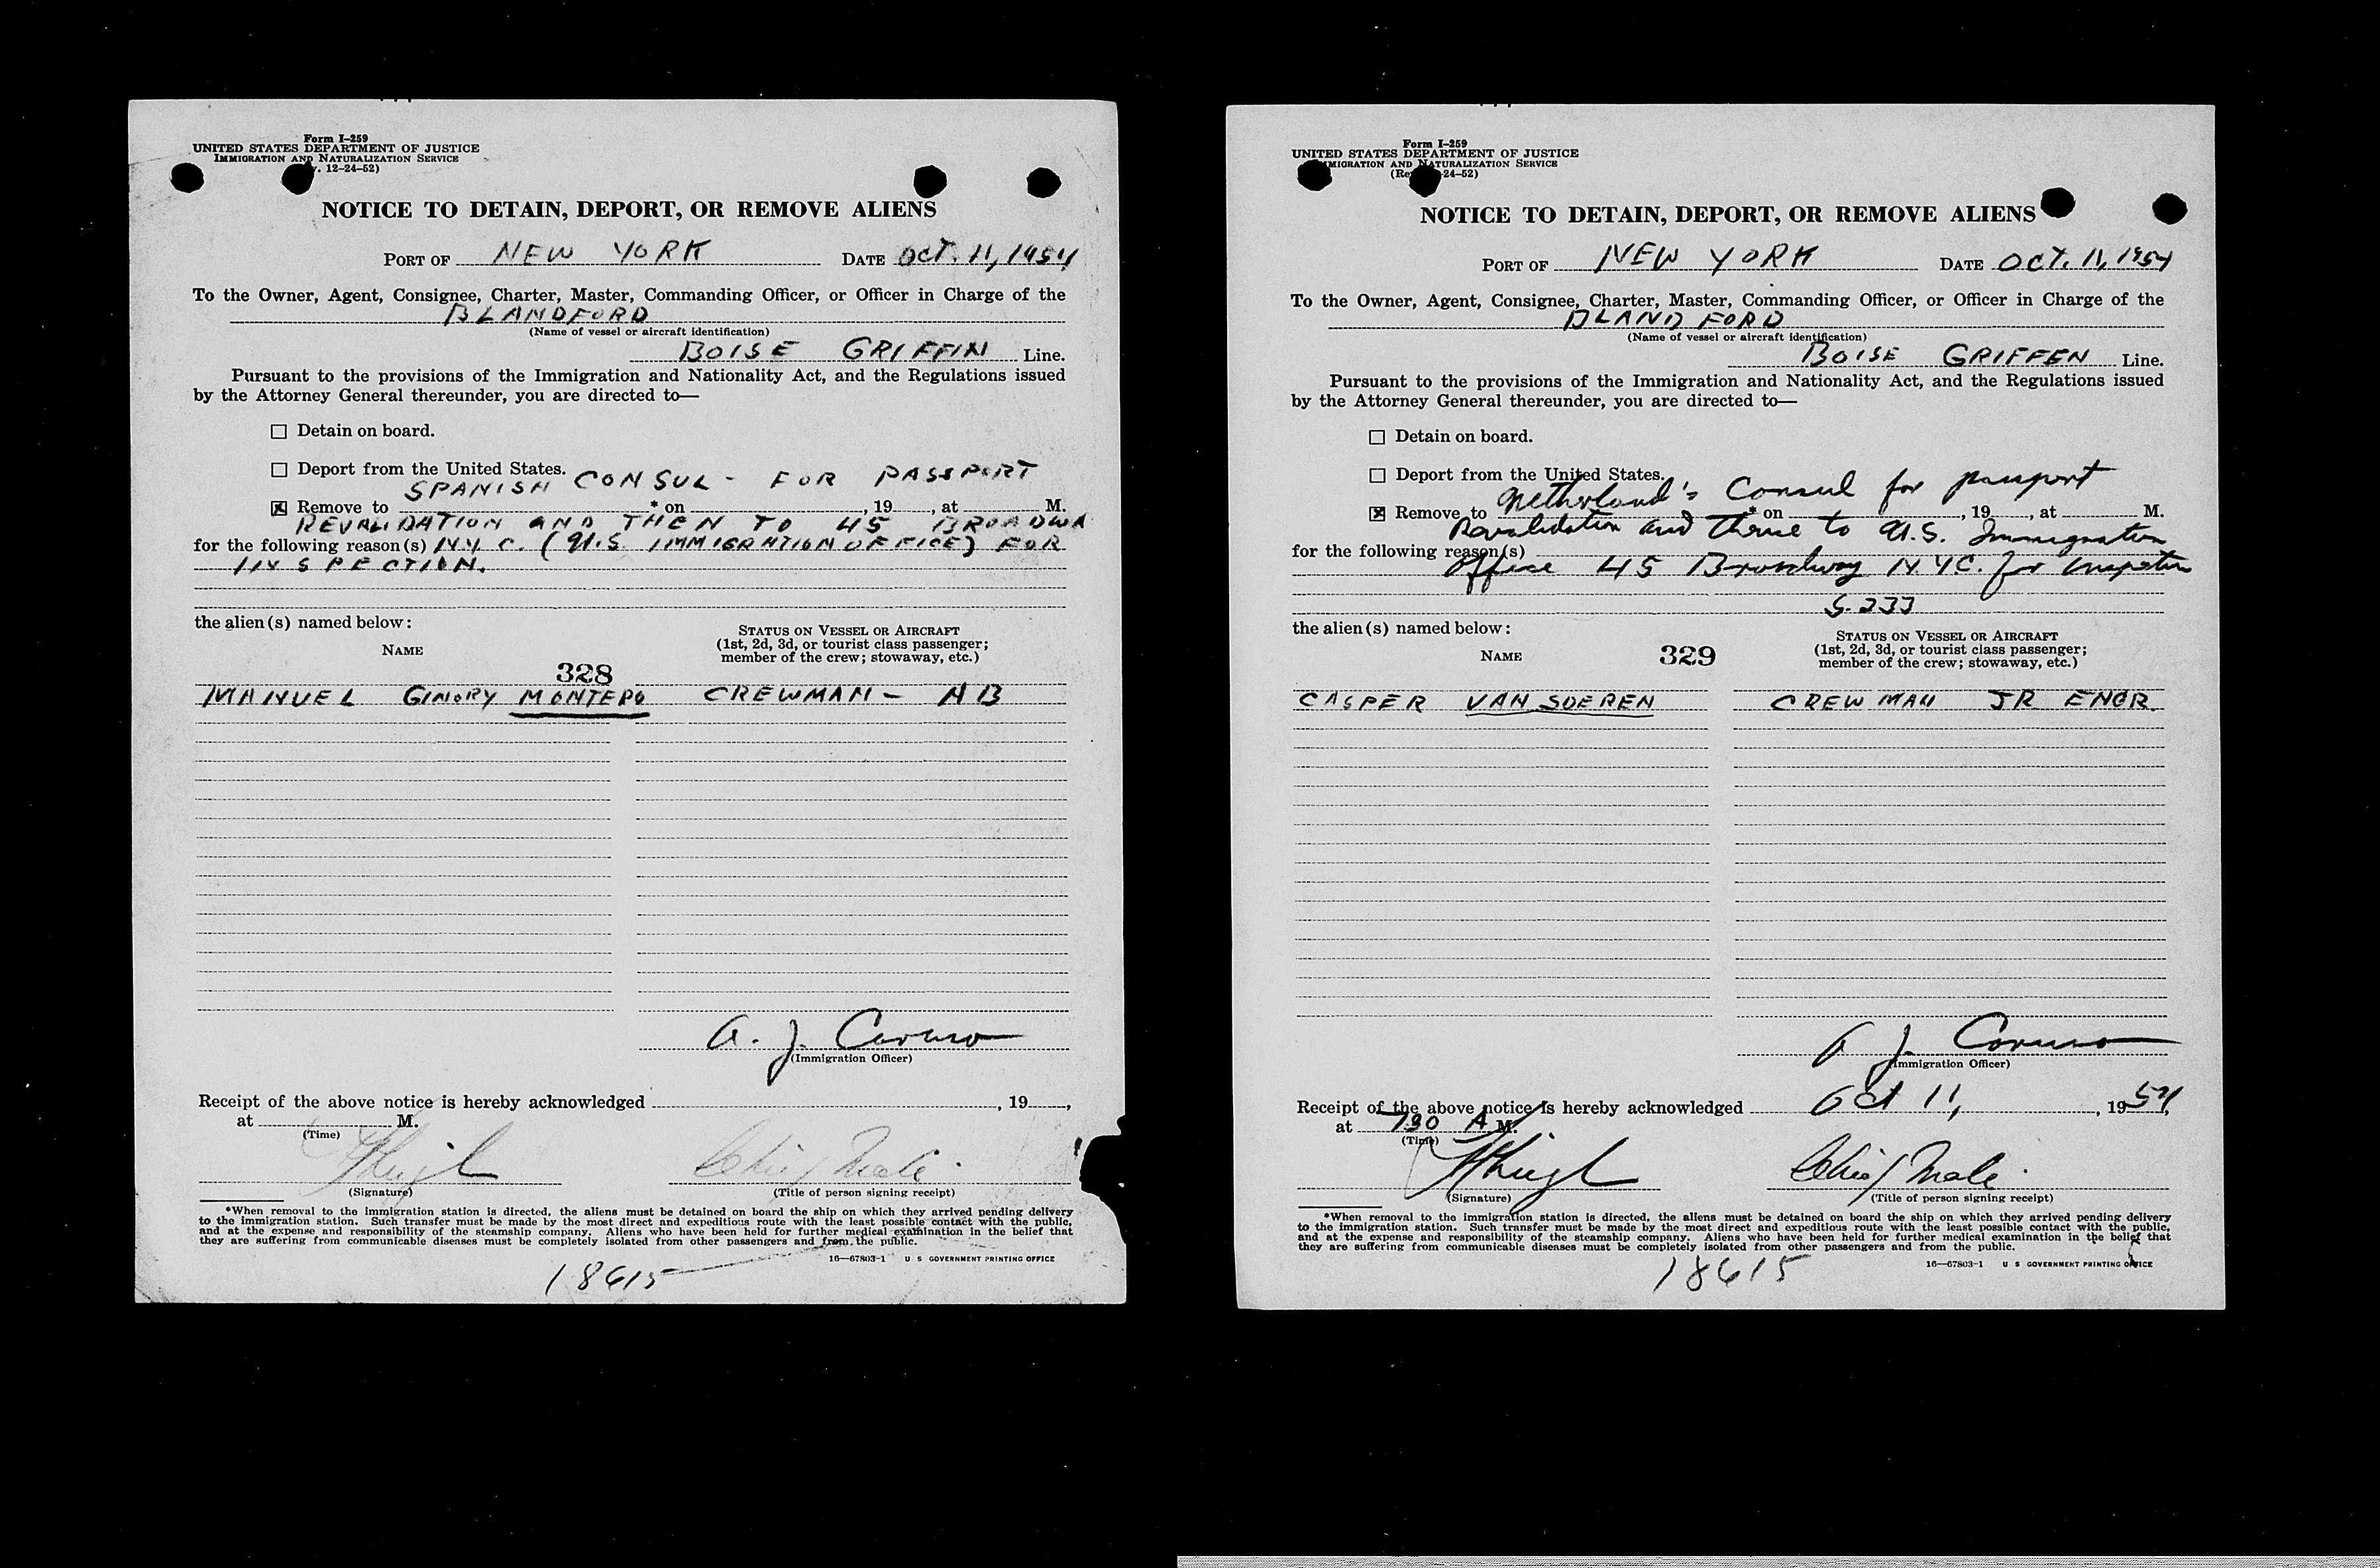 Form I-259
UNITED STATES DEPARTMENT OF JUSTICE
IMMIGRATION AND NATURALIZATION SERVICE
12-24-52)
NOTICE TO DETAIN, DEPORT, OR REMOVE ALIENS
PORT OF NEW YORK DATE OCT. 11, 1954
To the Owner, Agent, Consignee, Charter, Master, Commanding Officer, or Officer in Charge of the
BLANDFORD
(Name of vessel or aircraft identification)
BOISE GRIFFIN Line.
Pursuant to the provisions of the Immigration and Nationality Act, and the Regulations issued
by the Attorney General thereunder, you are directed to—
☐ Detain on board.
☐ Deport from the United States.
SPANISH CONSUL - FOR PASSPORT
☒ Remove to * on , 19 , at M.
REVALIDATION AND THEN TO 45 BROADWA
for the following reason(s) N.Y.C. (U.S IMMIGRATION OFFICE) FOR
INSPECTION.
the alien(s) named below:
NAME
STATUS ON VESSEL OR AIRCRAFT
(1st, 2d, 3d, or tourist class passenger;
member of the crew; stowaway, etc.)
328
MANUEL GINORY MONTERO CREWMAN - AB
A. J. Caruso
(Immigration Officer)
Receipt of the above notice is hereby acknowledged , 19 ,
at M.
(Time)
Chief Mate
(Signature) (Title of person signing receipt)
*When removal to the immigration station is directed, the aliens must be detained on board the ship on which they arrived pending delivery
to the immigration station. Such transfer must be made by the most direct and expeditious route with the least possible contact with the public,
and at the expense and responsibility of the steamship company. Aliens who have been held for further medical examination in the belief that
they are suffering from communicable diseases must be completely isolated from other passengers and from the public.
16—67803-1 U S GOVERNMENT PRINTING OFFICE
18615
Form I-259
UNITED STATES DEPARTMENT OF JUSTICE
IMMIGRATION AND NATURALIZATION SERVICE
(Re 24-52)
NOTICE TO DETAIN, DEPORT, OR REMOVE ALIENS
PORT OF NEW YORK DATE OCT. 11, 1954
To the Owner, Agent, Consignee, Charter, Master, Commanding Officer, or Officer in Charge of the
BLANDFORD
(Name of vessel or aircraft identification)
BOISE GRIFFEN Line.
Pursuant to the provisions of the Immigration and Nationality Act, and the Regulations issued
by the Attorney General thereunder, you are directed to—
☐ Detain on board.
☐ Deport from the United States.
Netherland's Consul for passport
☒ Remove to * on , 19 , at M.
Revalidation and thence to U.S. Immigration
for the following reason(s)
Office 45 Broadway N.Y.C. for inspection
S-233
the alien(s) named below:
NAME
STATUS ON VESSEL OR AIRCRAFT
(1st, 2d, 3d, or tourist class passenger;
member of the crew; stowaway, etc.)
329
CASPER VAN SOEREN CREWMAN JR ENGR.
A J. Caruso
(Immigration Officer)
Receipt of the above notice is hereby acknowledged Oct 11, , 1954,
at 730 A M.
(Time)
Chief Mate
(Signature) (Title of person signing receipt)
*When removal to the immigration station is directed, the aliens must be detained on board the ship on which they arrived pending delivery
to the immigration station. Such transfer must be made by the most direct and expeditious route with the least possible contact with the public,
and at the expense and responsibility of the steamship company. Aliens who have been held for further medical examination in the belief that
they are suffering from communicable diseases must be completely isolated from other passengers and from the public.
16—67803-1 U S GOVERNMENT PRINTING OFFICE
18615